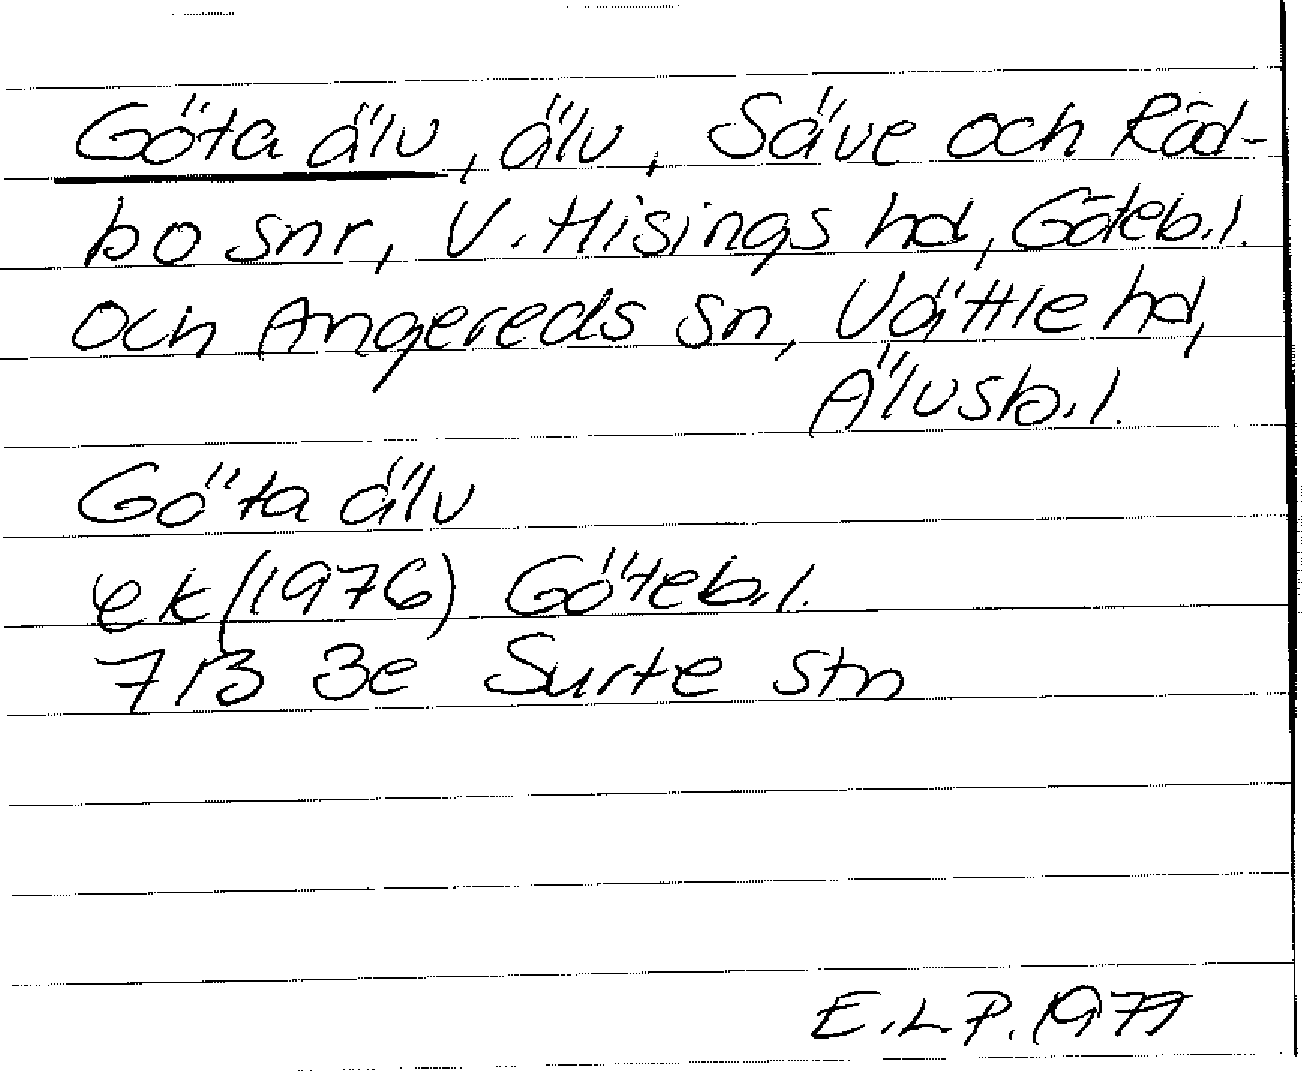 Göta älv, älv, Säve och Röd-
bo snr, V. Hisings hd, Göteb.l.
och Angereds sn, Vättle hd,
Älvsb.l.
Göta älv
ek (1976) Göteb.l.
7B 3e Surte stn
E.L.P. 1977